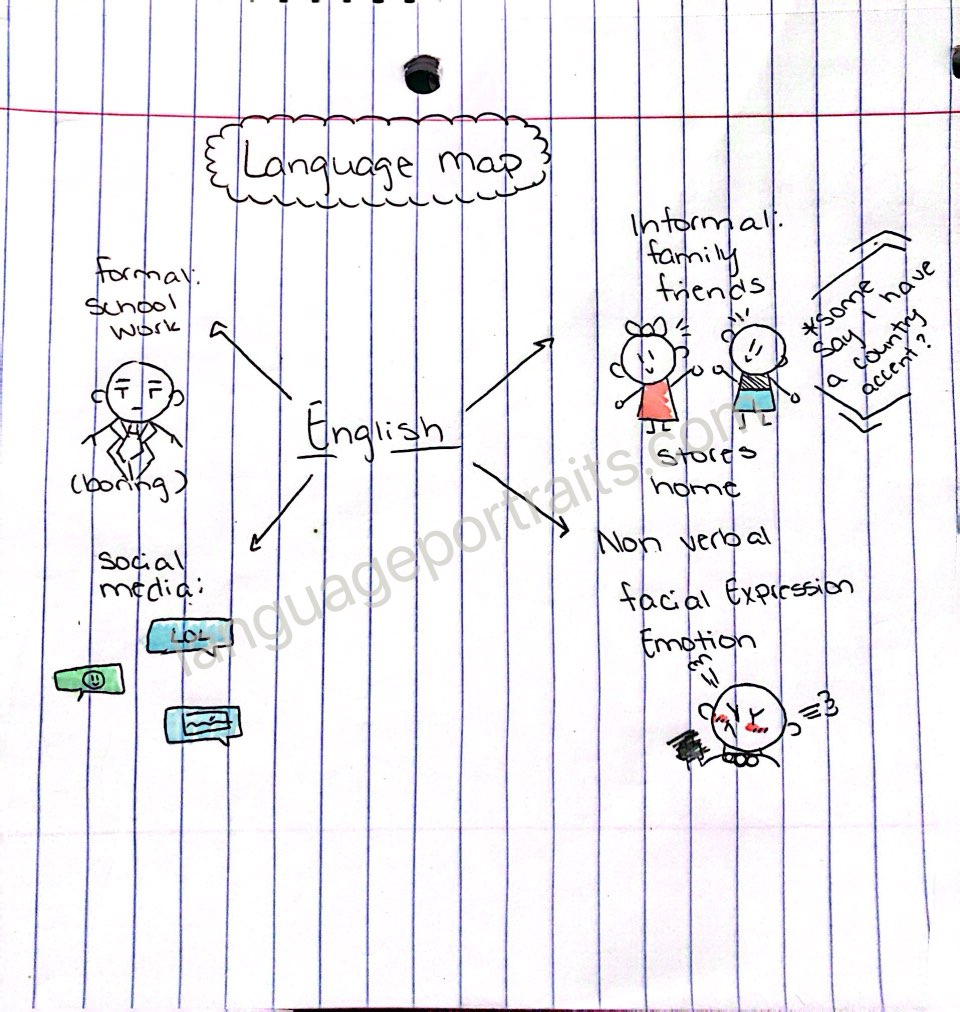 Language map
formal:
school
work
(boring)
English
Informal:
family
friends
*some
say I have
a country
accent?
stores
home
social
media:
LOL
Non verbal
facial Expression
Emotion
languageportraits.com